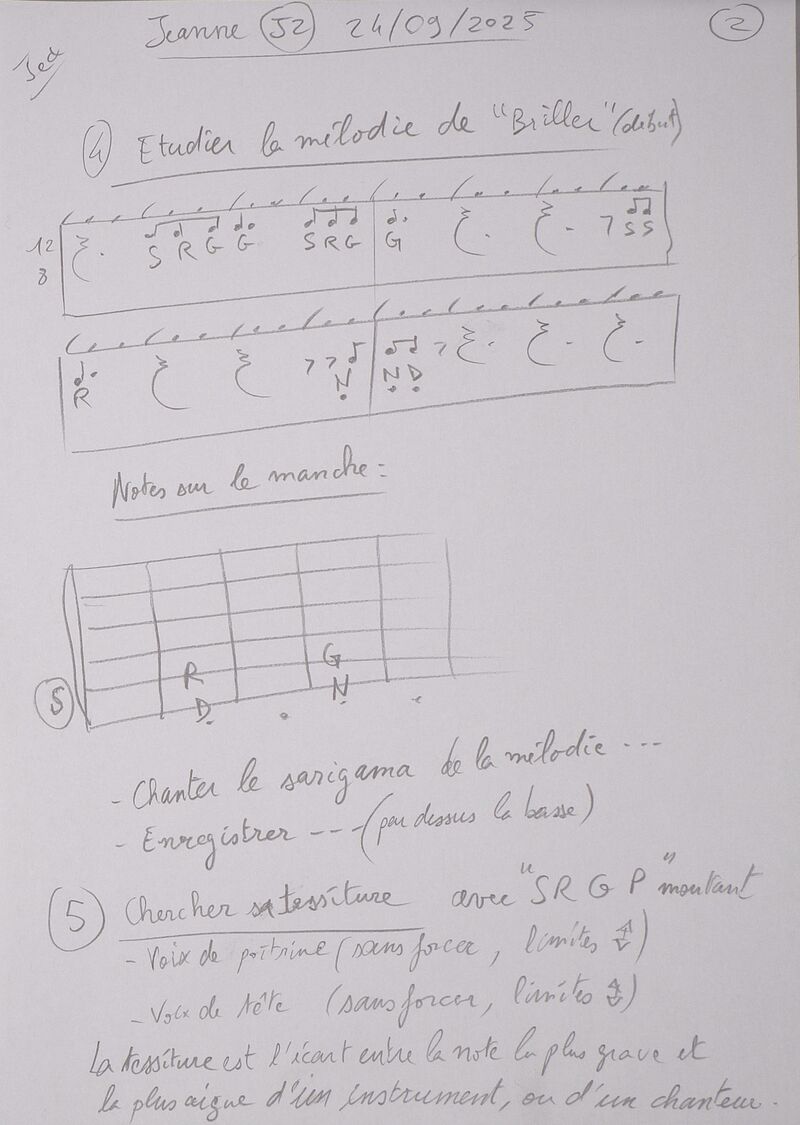 Jeanne J2 24/09/2025 2
4 Etudier la mélodie de "Briller" (début)
12
8
S R G G S R G G 7 S S
R 7 7 Ṇ Ṇ Ḍ 7
Notes sur le manche :
R G
S Ḍ Ṇ
- Chanter le sarigama de la mélodie ---
- Enregistrer --- (par dessus la basse)
5 Chercher sa tessiture avec "S R G P" montant
- Voix de poitrine (sans forcer, limites ⇕)
- Voix de tête (sans forcer, limites ⇕)
La tessiture est l'écart entre la note la plus grave et
la plus aigue d'un instrument, ou d'un chanteur.